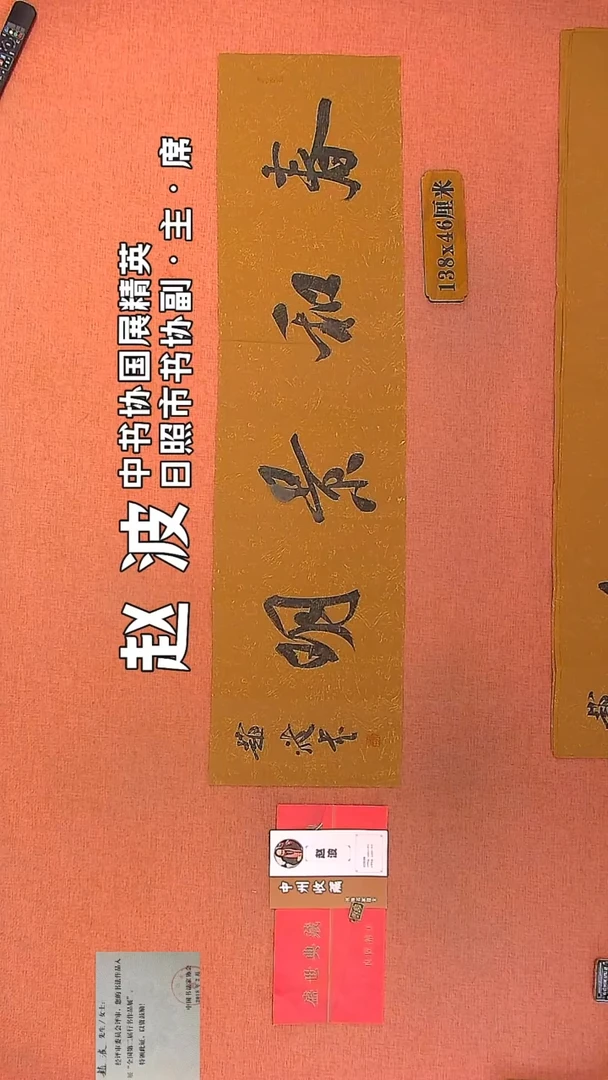 赵波
中书协国展精英
日照市书协副·主·席
春和景明
赵波书
138x46厘米
赵波
中州收藏
盛世典藏
赵波 先生/女士:
经评审委员会评审,您的书法作品入
展“全国第二届行书作品展”,
特颁此证,以资鼓励!
中国书法家协会